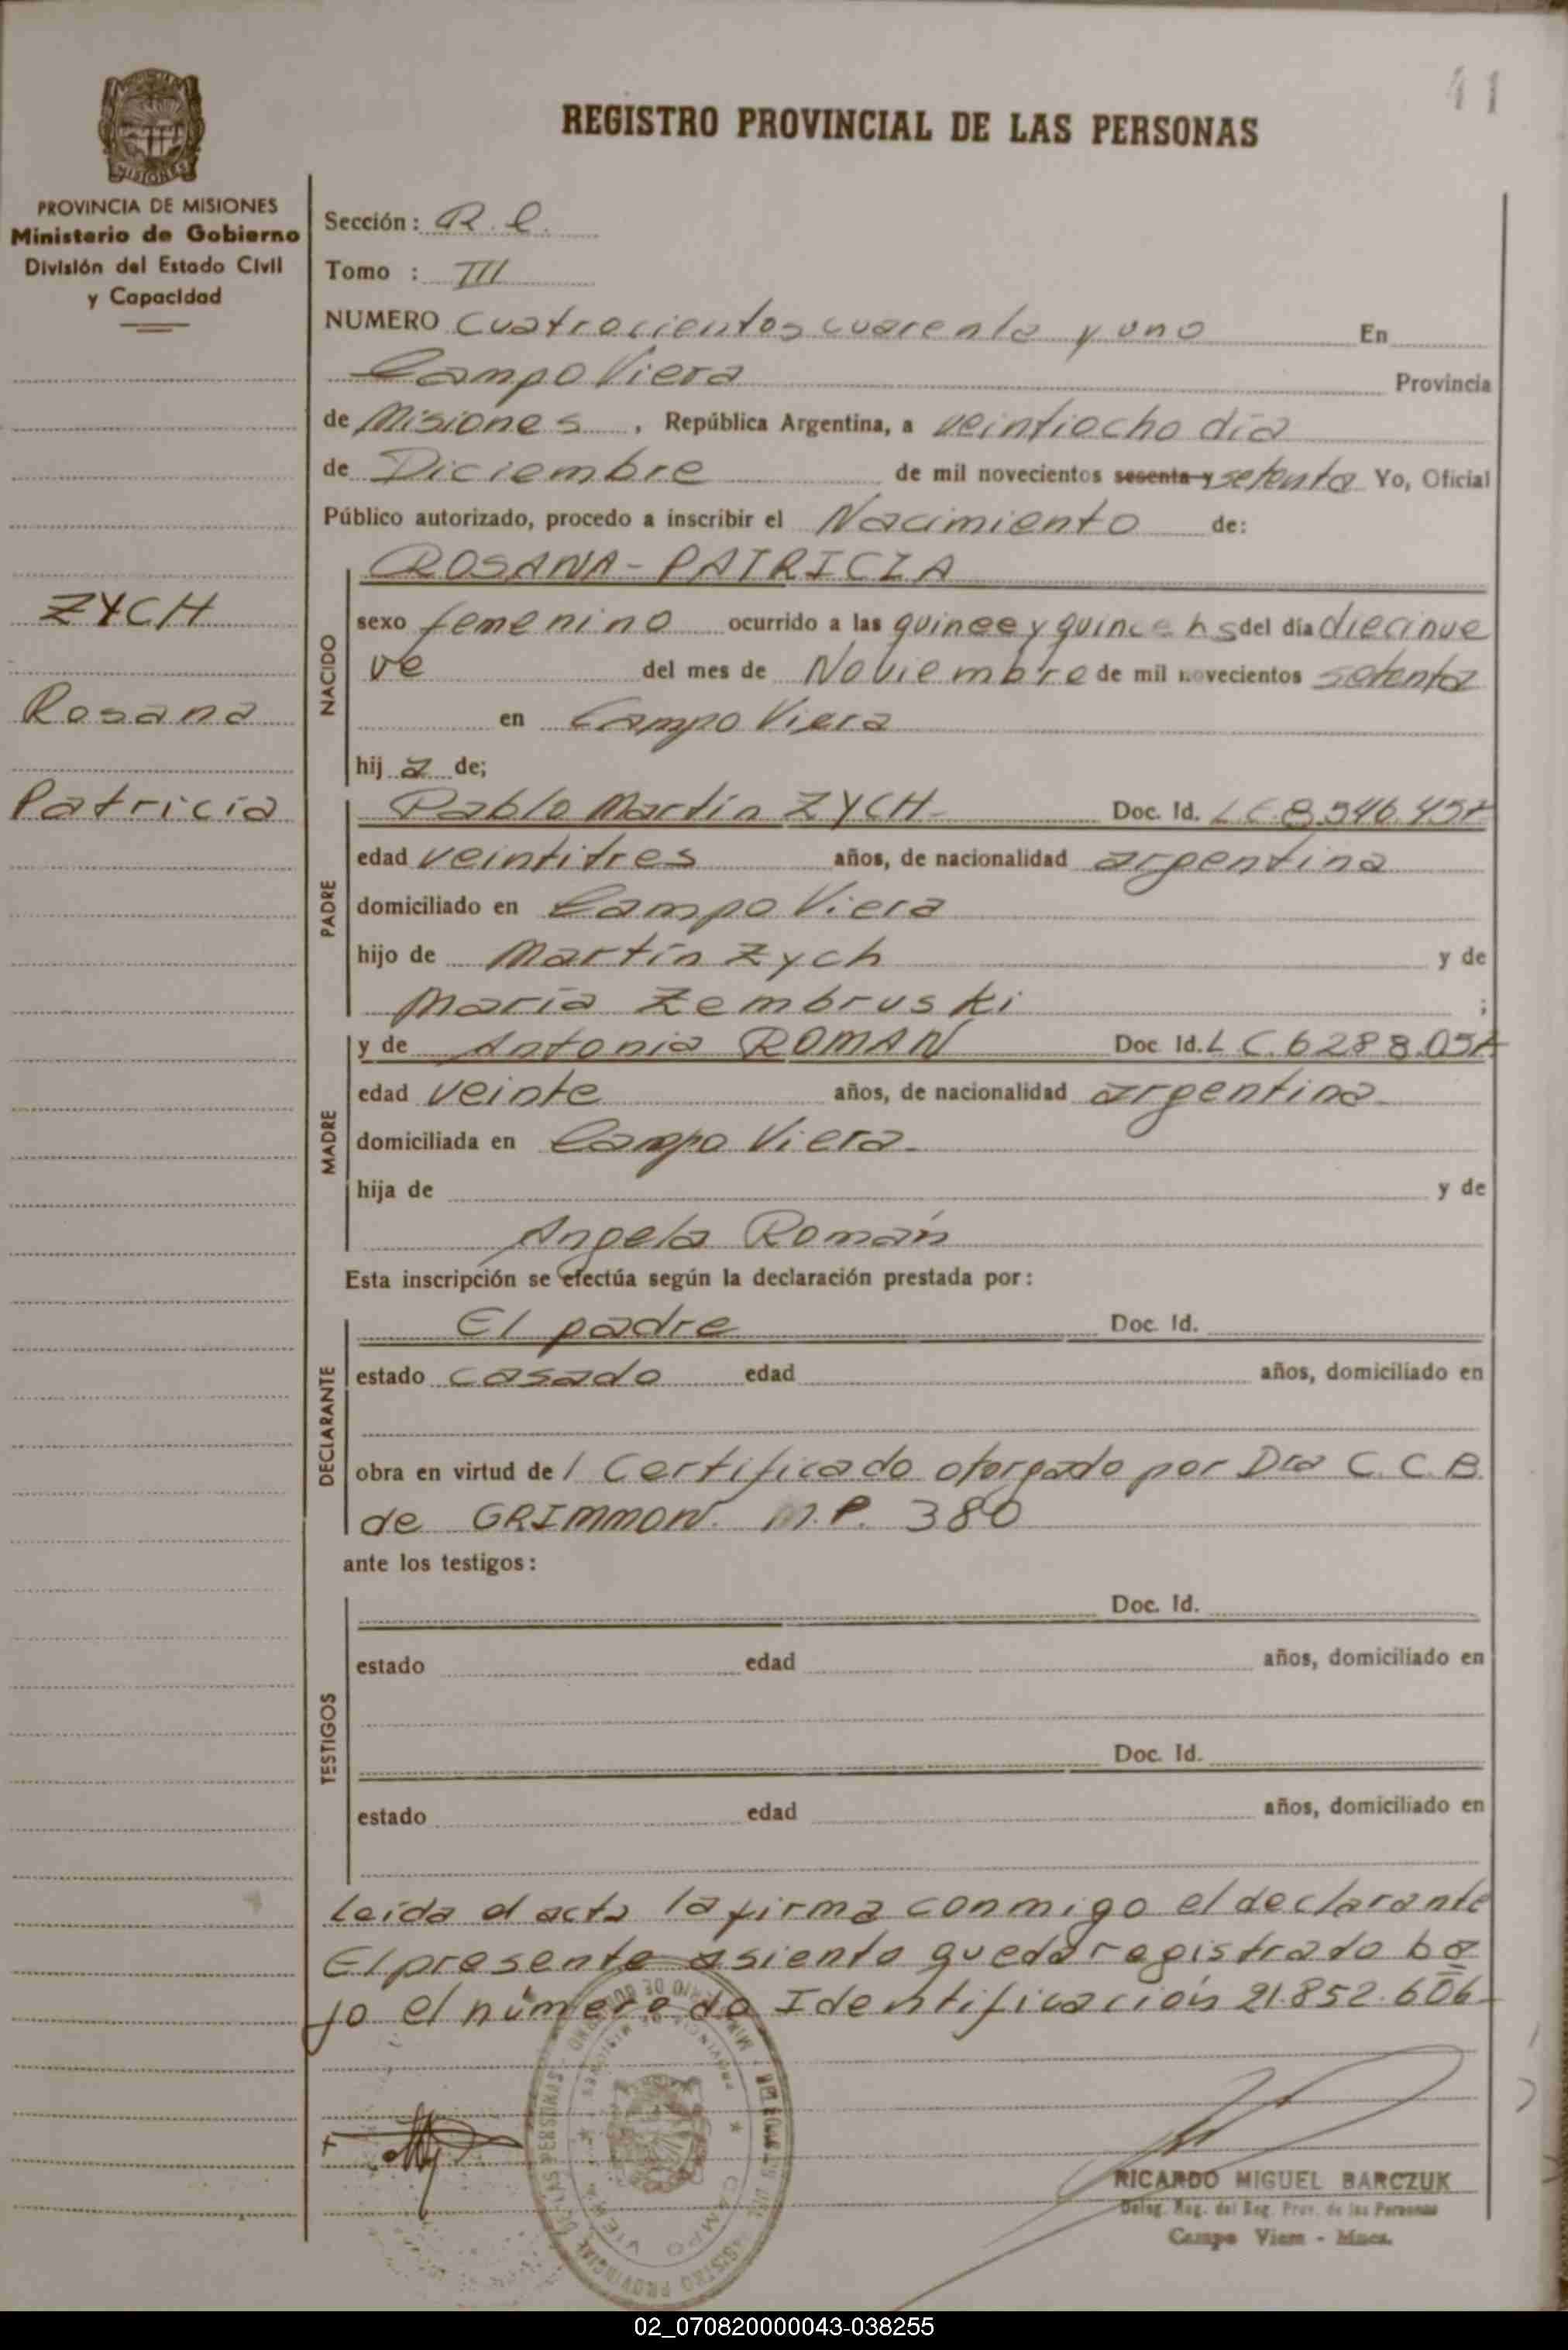 41
REGISTRO PROVINCIAL DE LAS PERSONAS
MISIONES
PROVINCIA DE MISIONES
Ministerio de Gobierno
División del Estado Civil
y Capacidad
Sección: R. C.
Tomo : III
NUMERO Cuatrocientos cuarenta y uno En
Campo Viera Provincia
de Misiones, República Argentina, a veintiocho día
de Diciembre de mil novecientos sesenta y setenta Yo, Oficial
Público autorizado, procedo a inscribir el Nacimiento de:
ROSANA - PATRICIA
ZYCH
Rosana
Patricia
NACIDO
sexo femenino ocurrido a las quince y quince hs del día diecinue
ve del mes de Noviembre de mil novecientos setenta
en Campo Viera
hija de;
PADRE
Pablo Martín ZYCH- Doc. Id. L E 8.546.457
edad veintitres años, de nacionalidad argentina
domiciliado en Campo Viera
hijo de Martín Zych y de
María Zembruski ;
MADRE
y de Antonia ROMAN Doc. Id. L C. 6288.051
edad veinte años, de nacionalidad argentina
domiciliada en Campo Viera
hija de y de
Angela Román
Esta inscripción se efectúa según la declaración prestada por:
DECLARANTE
El padre Doc. Id.
estado casado edad años, domiciliado en
obra en virtud de 1 Certificado otorgado por Dra C. C. B.
de GRIMMON. M.P. 380
ante los testigos:
TESTIGOS
Doc. Id.
estado edad años, domiciliado en
Doc. Id.
estado edad años, domiciliado en
Leída el acta la firma conmigo el declarante
El presente asiento queda registrado ba
jo el número de Identificación 21.852.606
RICARDO MIGUEL BARCZUK
Deleg. Reg. del Reg. Prov. de las Personas
Campo Viera - Mnes.
02_070820000043-038255